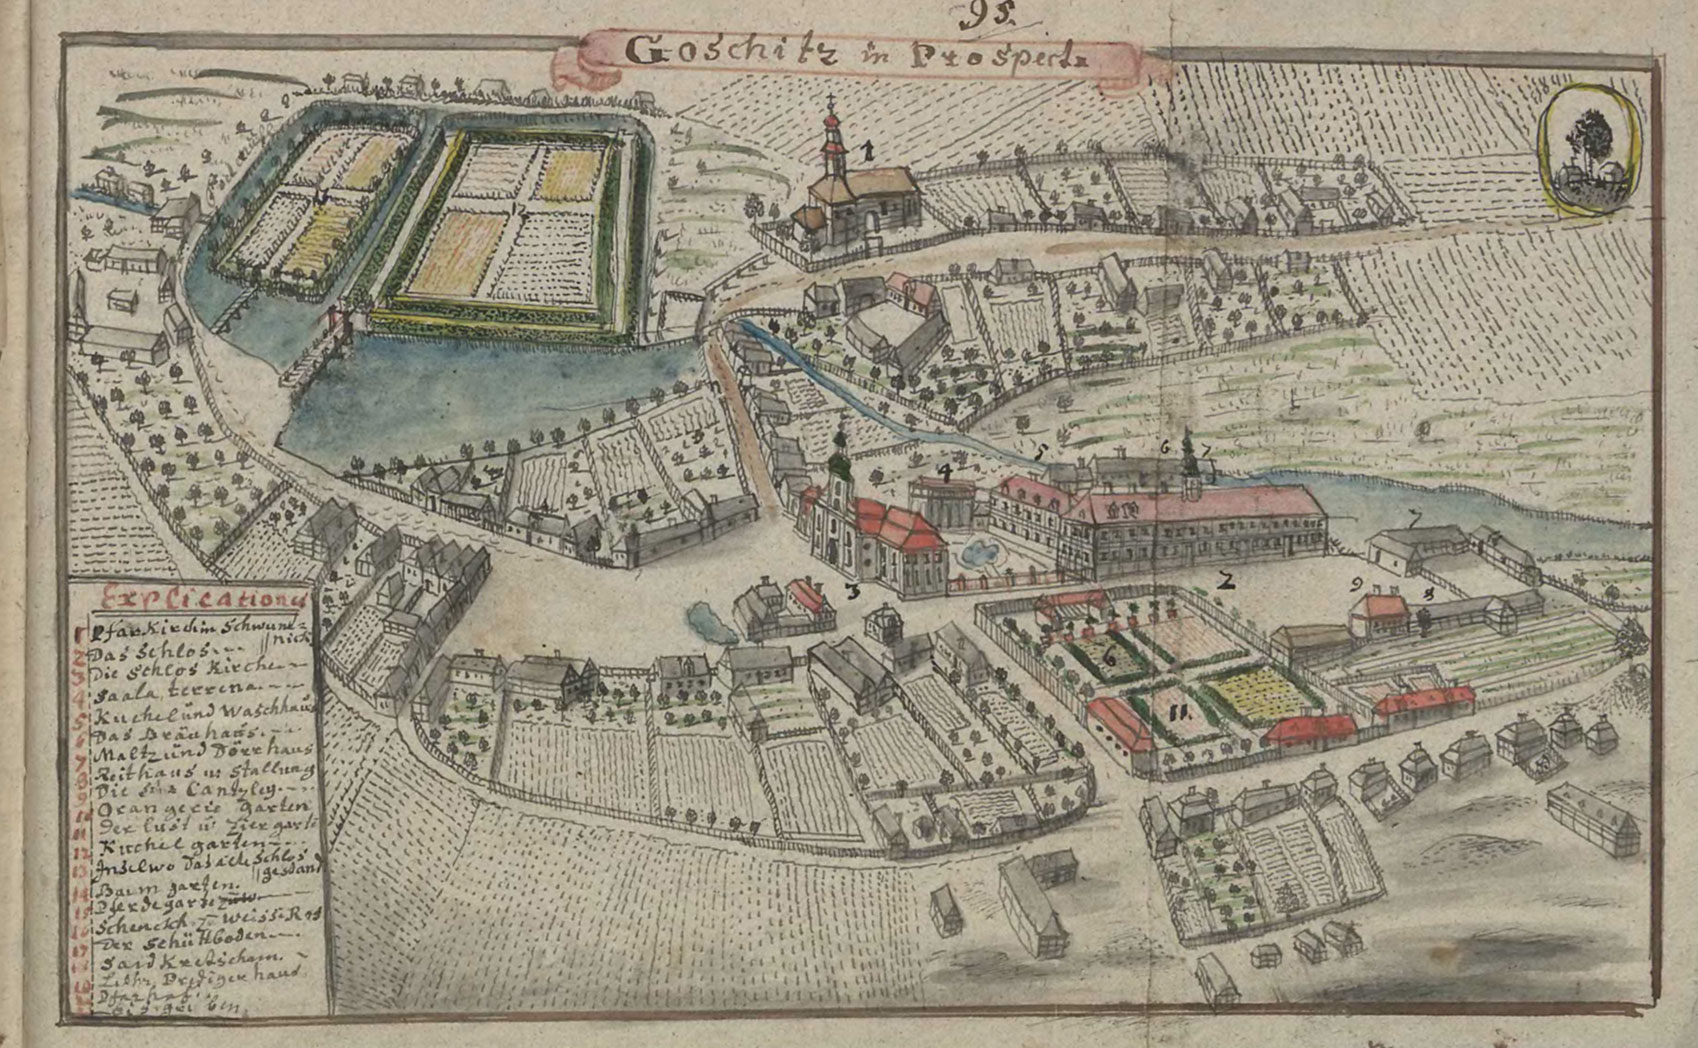 95.
Goschitz in Prospect
1
12
5
6
7
4
7
3
2
9
8
6
11
Explication
1 Pfar Kirch in Schwune=
nick
2 Das Schlos
3 Die Schlos Kirche
4 Saala terrena
5 Kuchel und Waschhaus
6 Das Bräuhaus
7 Maltz und Dörrhaus
8 Reithaus u: Stallung
9 Die Cantzley
Orangerie garten
11 der lust u Zier gart
12 Kuchel garten
13 Insel wo das alte Schlos
gestand
14 Baum garten
15 Pferde garte
16 Schenckh z weisse Ros
17 Der Schüttboden
Kretscham
Prediger haus